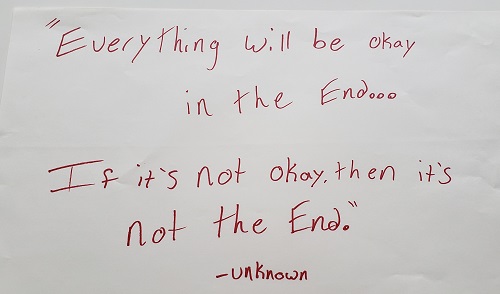 "Everything will be okay
in the End...
If it's not okay, then it's
not the End."
-unknown